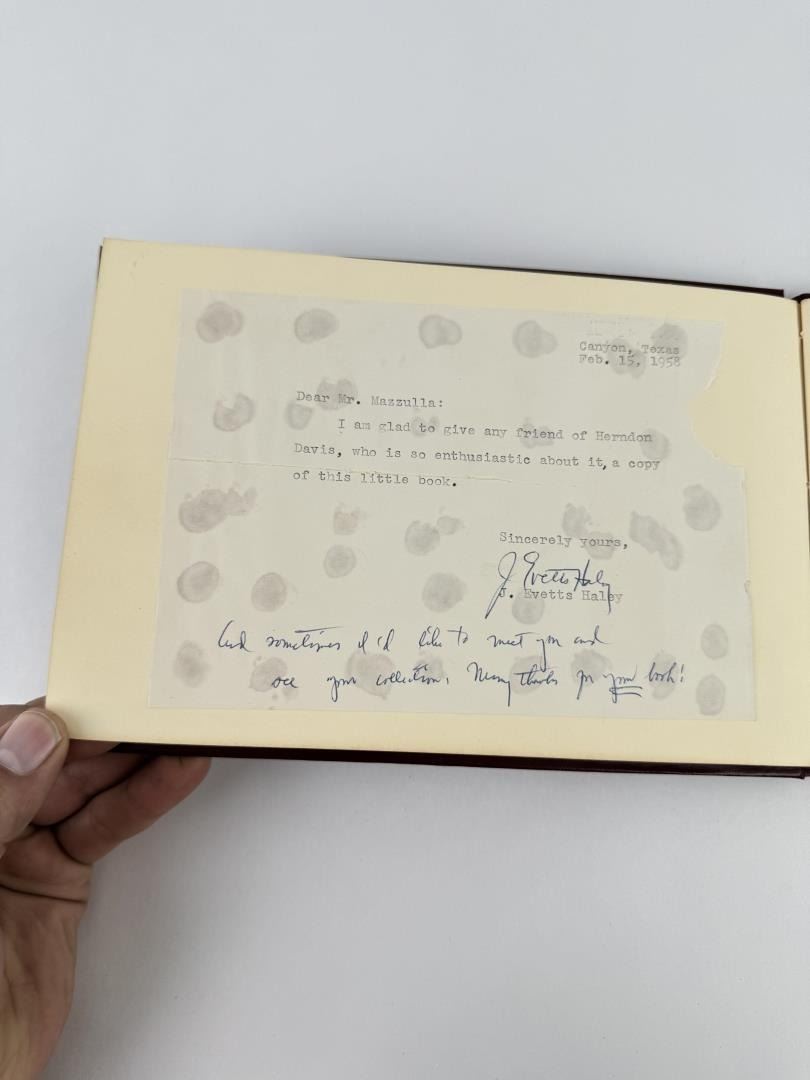 Canyon, Texas
Feb. 15, 1958
Dear Mr. Mazzulla:
I am glad to give any friend of Herndon
Davis, who is so enthusiastic about it, a copy
of this little book.
Sincerely yours,
J. Evetts Haley
J. Evetts Haley
And sometimes I'd like to meet you and
see your collection. Many thanks for your book!